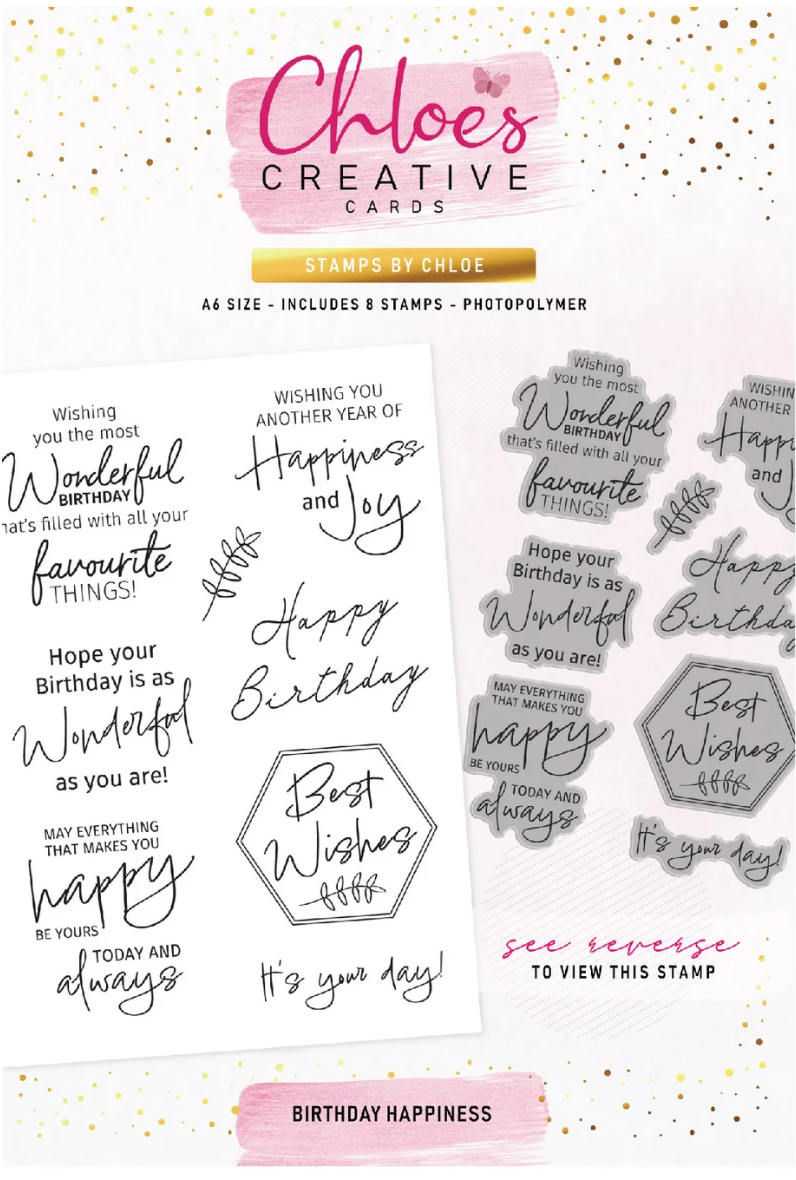 Chloes
CREATIVE
CARDS
STAMPS BY CHLOE
A6 SIZE - INCLUDES 8 STAMPS - PHOTOPOLYMER
Wishing
you the most
Wonderful
BIRTHDAY
hat's filled with all your
favourite
THINGS!
WISHING YOU
ANOTHER YEAR OF
Happiness
and Joy
Hope your
Birthday is as
Wonderful
as you are!
Happy
Birthday
MAY EVERYTHING
THAT MAKES YOU
happy
BE YOURS
TODAY AND
always
Best
Wishes
It's your day!
Wishing
you the most
Wonderful
BIRTHDAY
that's filled with all your
favourite
THINGS!
WISHIN
ANOTHER
Happi
and J
Hope your
Birthday is as
Wonderful
as you are!
Happy
Birthda
MAY EVERYTHING
THAT MAKES YOU
happy
BE YOURS
TODAY AND
always
Best
Wishes
It's your day!
see reverse
TO VIEW THIS STAMP
BIRTHDAY HAPPINESS